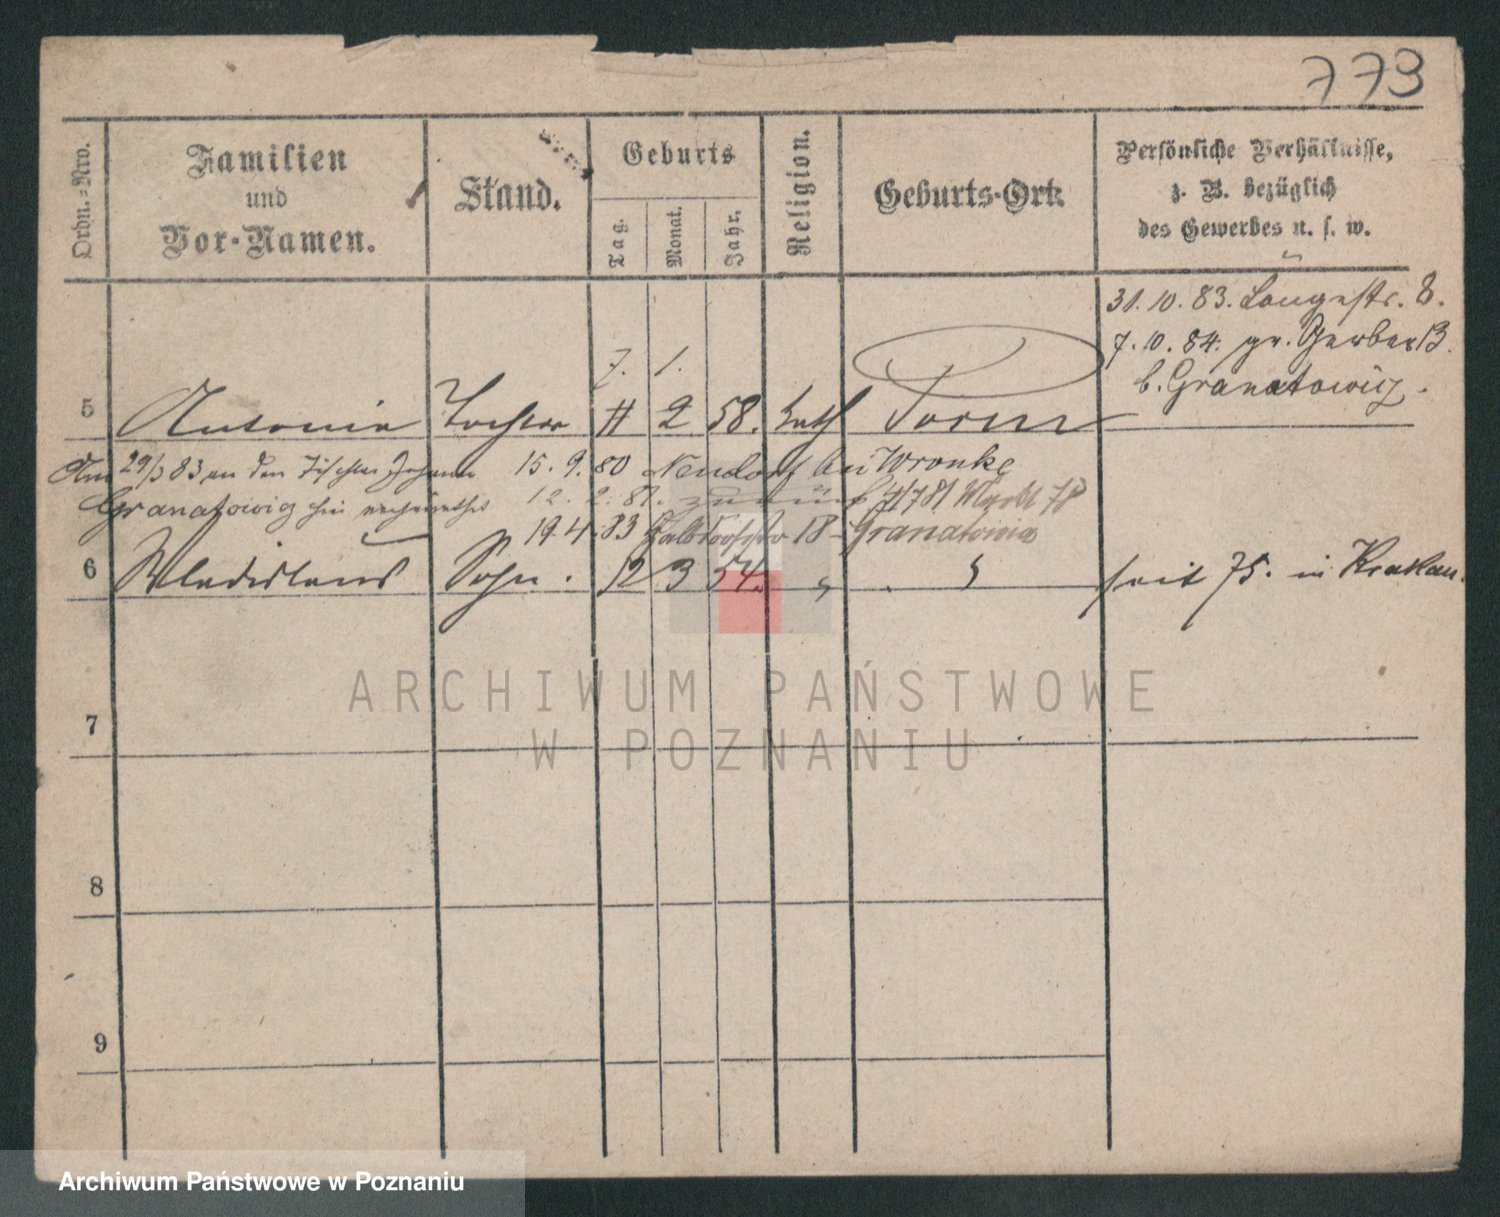 773
Ordn.-Nro.
Familien
und
Vor-Namen.
Stand.
Geburts
Tag.
Monat.
Jahr.
Religion.
Geburts-Ort.
Persönliche Verhältnisse,
z. B. bezüglich
des Gewerbes u. s. w.
31. 10. 83. Langestr. 8.
7. 10. 84. gr. Gerber
b. Granatowicz.
7. 1.
5 Antonia Tochter 2 58. kath Posen
Am 29/3 83 an den Tischler Johann 15. 9. 80 Neudorf bei Wronke
Granatowicz hier verheirathet 12. 2. 81. zurück
19. 4. 83 Halbdorfstr 18 Granatowicz
6 Wladislaus Sohn. 12 3 54. " " seit 75. in Krakau.
7
8
9
ARCHIWUM PAŃSTWOWE
W POZNANIU
Archiwum Państwowe w Poznaniu